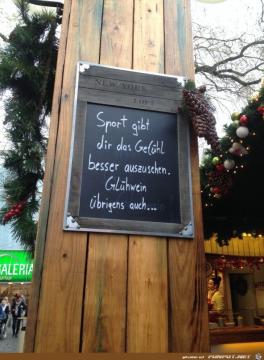 NEW YORK
LOFT
Sport gibt
dir das Gefühl
besser auszusehen.
Glühwein
übrigens auch...
GALERIA